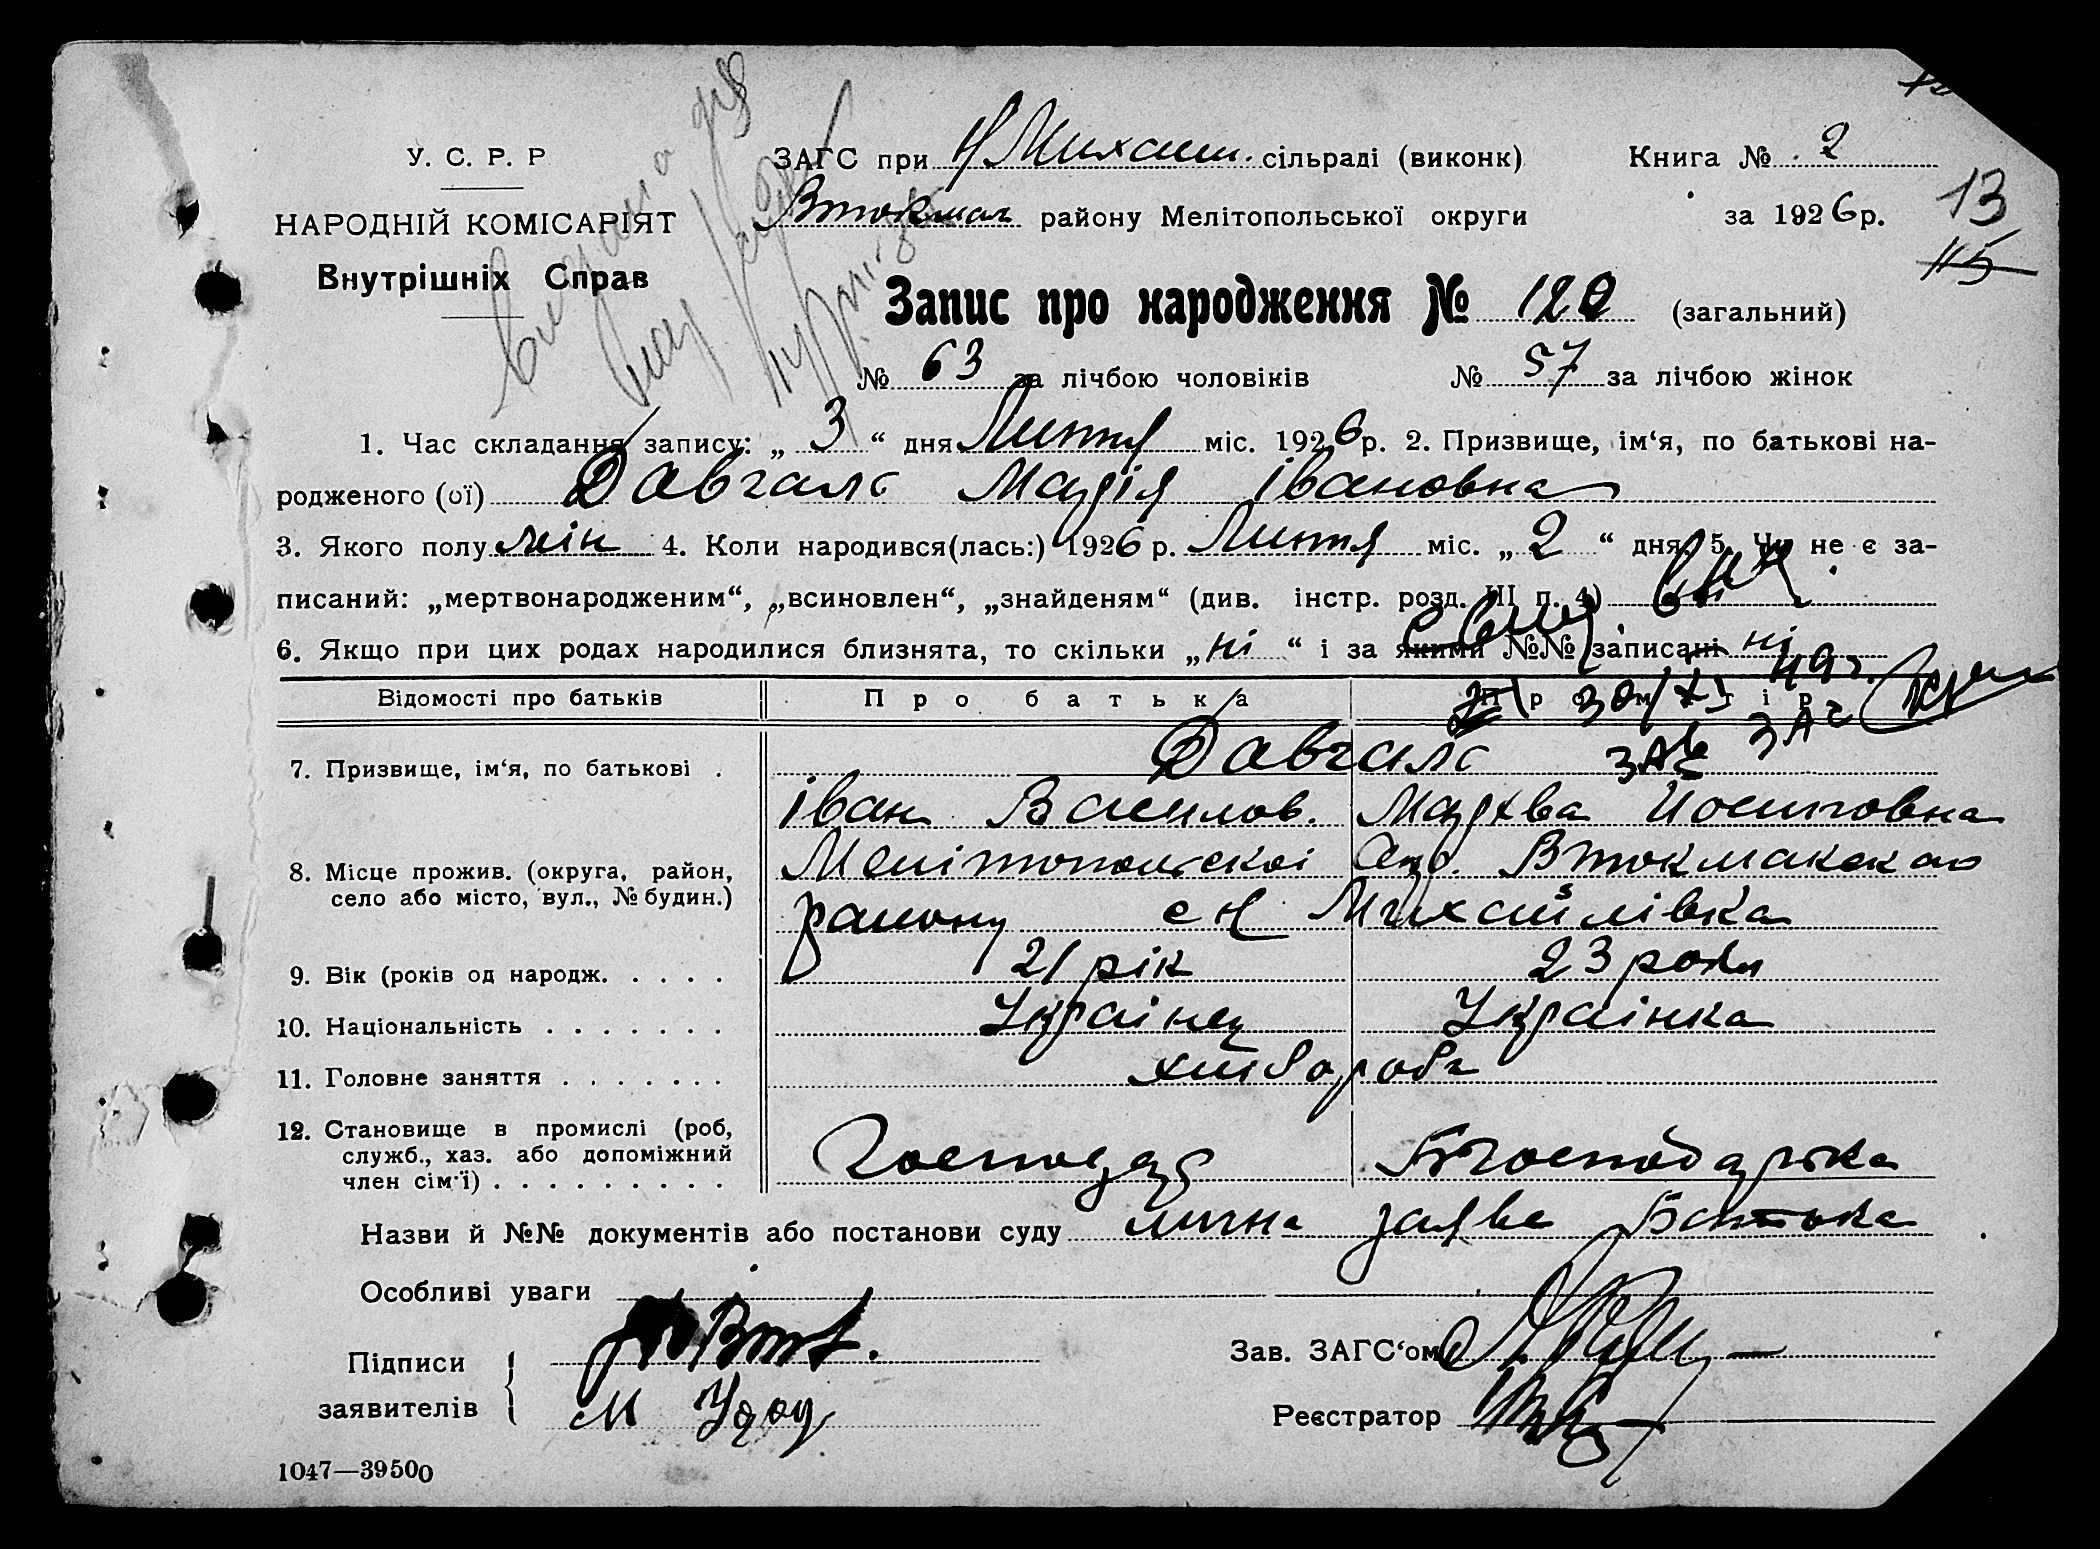 У. С. Р. Р
НАРОДНІЙ КОМІСАРІЯТ
Внутрішніх Справ
ЗАГС при Н Михайл. сільраді (виконк)
Книга № 2
Втокмак району Мелітопольської округи
за 1926 р.
13
115
Запис про народження № 120 (загальний)
№ 63 за лічбою чоловіків № 57 за лічбою жінок
1. Час складання запису: „ 3 “ дня Лютня міс. 1926 р. 2. Призвище, ім‘я, по батькові на-
родженого (ої) Давгаль Марія Івановна
3. Якого полу жін 4. Коли народився(лась:) 1926 р. Лютня міс. „ 2 “ дня. 5. Чи не є за-
писаний: „мертвонародженим“, „всиновлен“, „знайденям“ (див. інстр. розд. III п. 4)
6. Якщо при цих родах народилися близнята, то скільки „ ні “ і за якими №№ записані ні
Відомості про батьків Про батька Про матір
7. Призвище, ім‘я, по батькові . Давгаль
Іван Василов. Мархва Йосиповна
8. Місце прожив. (округа, район,
село або місто, вул., № будин.)
Мелітопольскоі окр. Втокмакского
району с Н Михайлівка
9. Вік (років од народж. . . . . 21 рік 23 роки
10. Національність . . . . . . . Украінец Украінка
11. Головне заняття . . . . . . . хлібороб
12. Становище в промислі (роб,
служб., хаз. або допоміжний
член сім‘ї) . . . . . . . . .
Господар Господарька
Назви й №№ документів або постанови суду лична заява Батька
Особливі уваги
Підписи
заявителів
М Удод
Зав. ЗАГС‘ом
Реєстратор
1047—39500